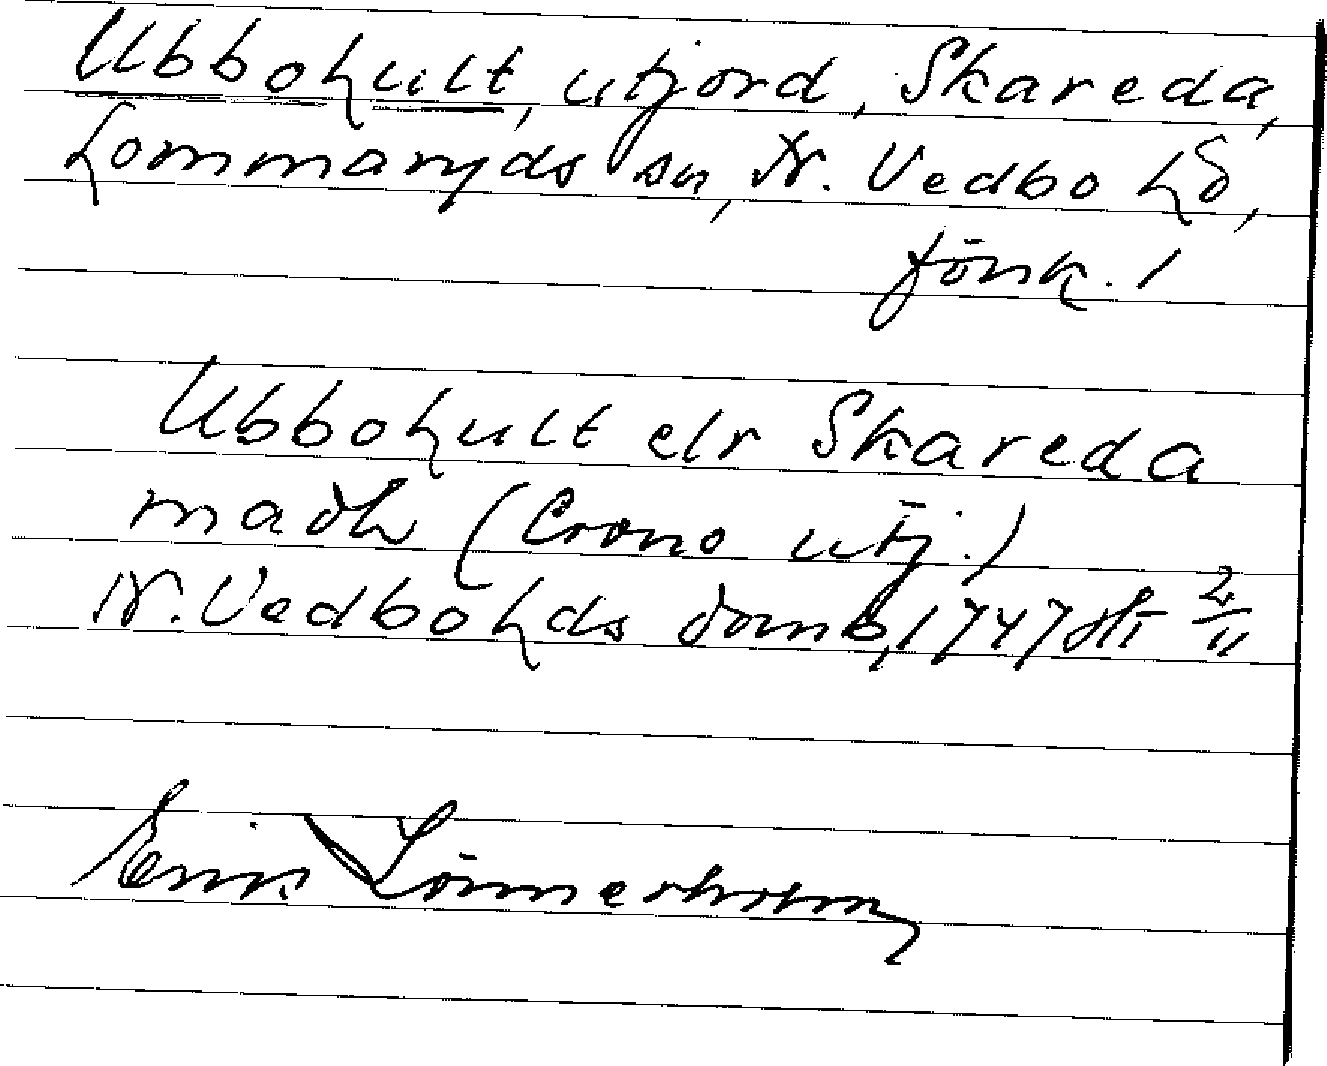 Ubbohult, utjord, Skareda,
Lommaryds sn, N. Vedbo hd,
Jönk. l
Ubbohult elr Skareda
madh (Crono utj.)
N. Vedbo hds domb, 1747 ht 2/11
Erik Lönnerholm